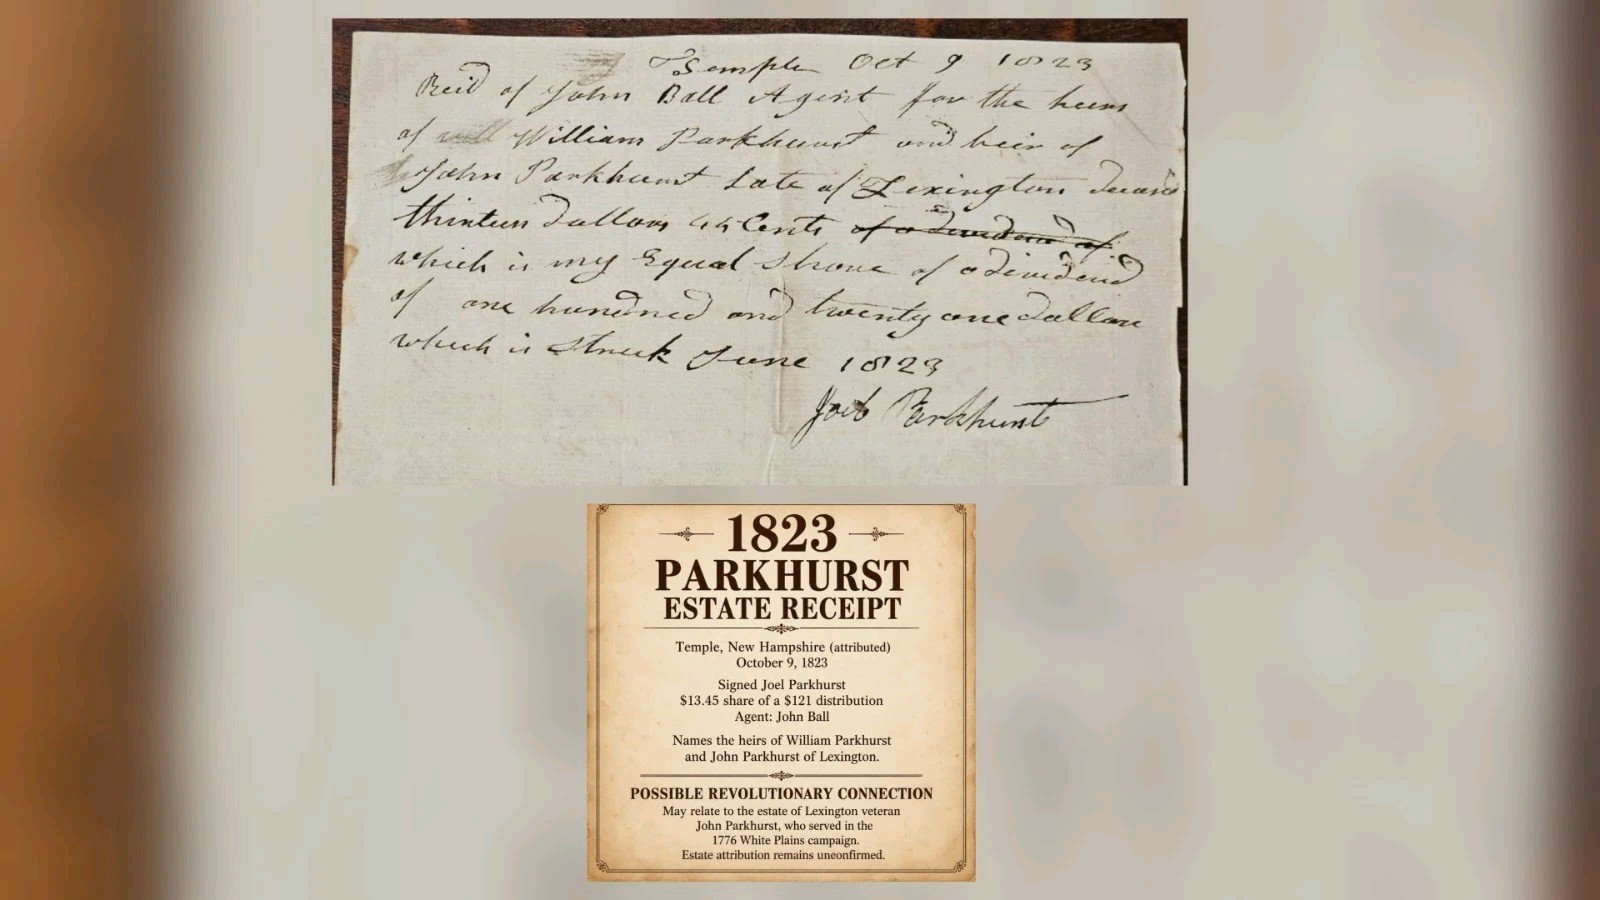 Temple Oct 9 1823
Recd of John Ball Agent for the heirs
of William Parkhurst and heir of
John Parkhurst Late of Lexington
thirteen dollars 44 Cents of a dividend of
which is my Equal Share of a dividend
of one hundred and twenty one dollars
which is struck June 1823
Joel Parkhurst
1823
PARKHURST
ESTATE RECEIPT
Temple, New Hampshire (attributed)
October 9, 1823
Signed Joel Parkhurst
$13.45 share of a $121 distribution
Agent: John Ball
Names the heirs of William Parkhurst
and John Parkhurst of Lexington.
POSSIBLE REVOLUTIONARY CONNECTION
May relate to the estate of Lexington veteran
John Parkhurst, who served in the
1776 White Plains campaign.
Estate attribution remains uneonfirmed.